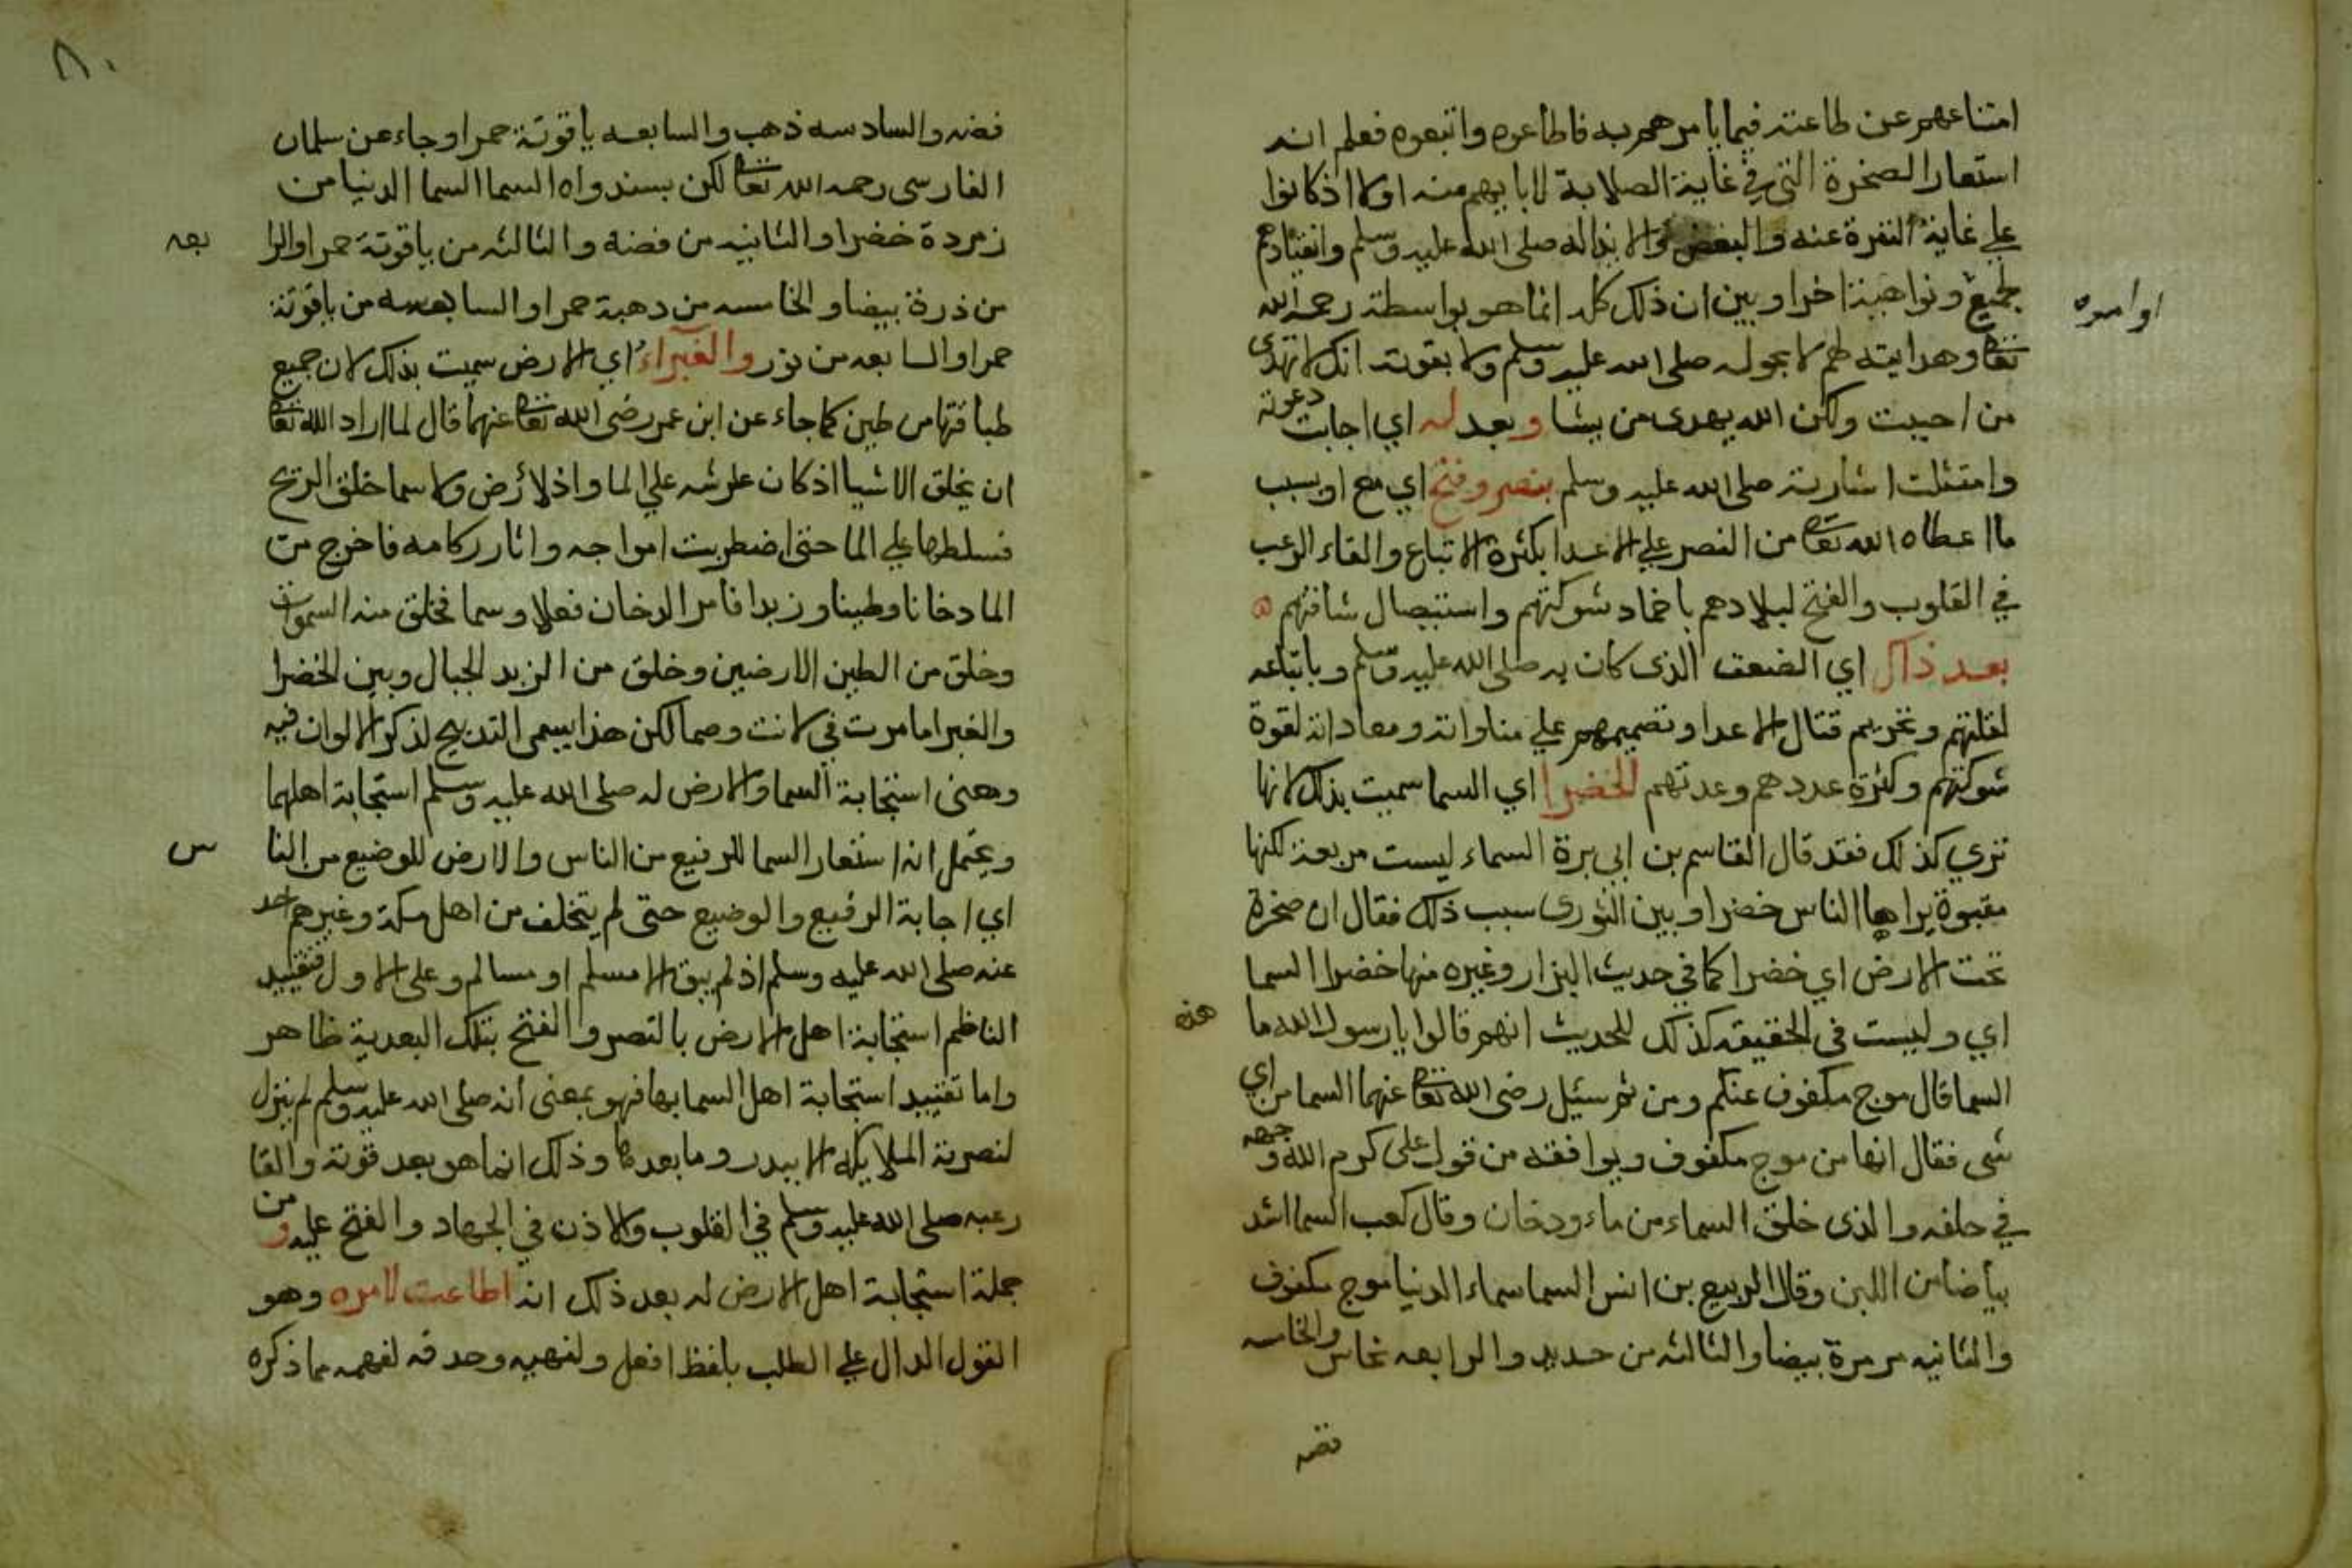 امتناعهم عن طاعته فيما يامرهم به فاطاعوه واتبعوه فعلم انه
استعار الصخرة التي في غاية الصلابة لابايهم منه اولا اذ كانوا
علي غاية النفرة عنه والبغض والايذا له صلى الله عليه وسلم وانقيادهم
لجميع ونواهيه اخرا وبين ان ذلك كله انما هو بواسطة رحمة الله
اوامره
تعا وهدايته لهم لا بحوله صلى الله عليه وسلم ولا بقوته انك لا تهدى
من احببت ولكن الله يهدى من يشا وبعد له اي اجابت دعوته
وامتثلت اشارته صلى الله عليه وسلم بنصر وفتح اي مع او بسبب
ما اعطاه الله تعا من النصر علي الاعدا بكثرة الاتباع والقاء الرعب
في القلوب والفتح لبلادهم باخماد شوكتهم واستيصال شافتهم
بعد ذاك اي الضعف الذى كان به صلى الله عليه وسلم وباتباعه
لقلتهم وتحريم قتال الاعدا وتصميمهم علي مناواته ومعاداته لقوة
شوكتهم وكثرة عددهم وعدتهم الخضرا اي السما سميت بذلك لانها
تري كذلك فقد قال القاسم بن ابي برة السماء ليست مربعة لكنها
مقبوة يراها الناس خضرا وبين الثورى سبب ذلك فقال ان صخرة
تحت الارض اي خضرا كما في حديث البزار وغيره منها خضرا السما
اي وليست في الحقيقه كذلك للحديث انهم قالوا يارسول الله ما
هذه
السما قال موج مكفوف عنكم ومن ثم سئيل رضى الله تعا عنهما السما من اي
شى فقال انها من موج مكفوف ويوافقه من قول على كرم الله وجهه
في حلفه والذى خلق السماء من ماء ودخان وقال كعب السما اشد
بياضا من اللبن وقال الربيع بن انس السما سماء الدنيا موج مكفوف
والثانيه مرمرة بيضا والثالثه من حديد والرابعه نحاس والخامسه
فضه
٨٠
فضه والسادسه ذهب والسابعه ياقوتة حمرا وجاء عن سلمان
الفارسى رحمه الله تعا لكن بسند واه السما السما الدنيا من
زمردة خضرا والثانيه من فضه والثالثه من ياقوتة حمرا والرا
بعه
من ذرة بيضا والخامسه من دهبة حمرا والسابعسه من ياقوتة
حمرا والسابعه من نور والغبراء اي الارض سميت بذلك لان جميع
طباقتها من طين كما جاء عن ابن عمر رضى الله تعا عنهما قال لما اراد الله تعا
ان يخلق الاشيا اذ كان عرشه علي الما واذ لا أرض ولا سما خلق الريح
فسلطها علي الما حتى اضطربت امواجه واثار ركامه فاخرج من
الما دخانا وطينا وزبدا فامر الدخان فعلا وسما فخلق منه السموات
وخلق من الطين الارضين وخلق من الزبد الجبال وبين الخضرا
والغبرا ما مرت في لانت وصما لكن هذا يسمى التدبيج لذكر الالوان فيه
ومعنى استجابة السما والارض له صلى الله عليه وسلم استجابة اهلهما
ويحتمل انه استعار السما للرفيع من الناس والارض للوضيع من النا
س
اي اجابة الرفيع والوضيع حتى لم يتخلف من اهل مكة وغيرهم احد
عنه صلى الله عليه وسلم اذ لم يبق الا مسلم او مسالم وعلى الاول فتقييد
الناظم استجابة اهل الارض بالنصر والفتح بتلك البعدية ظاهر
واما تقييد استجابة اهل السما بها فهو بمعنى انه صلى الله عليه وسلم لم ينزل
لنصرته الملايكه الا ببدر وما بعدها وذلك انما هو بعد قوته والقا
رعبه صلى الله عليه وسلم في القلوب والاذن في الجهاد والفتح عليه ومن
جملة استجابة اهل الارض له بعد ذلك انه اطاعت لامره وهو
القول الدال علي الطلب بلفظ افعل ولنهيه وحدفه لفهمه مما ذكره